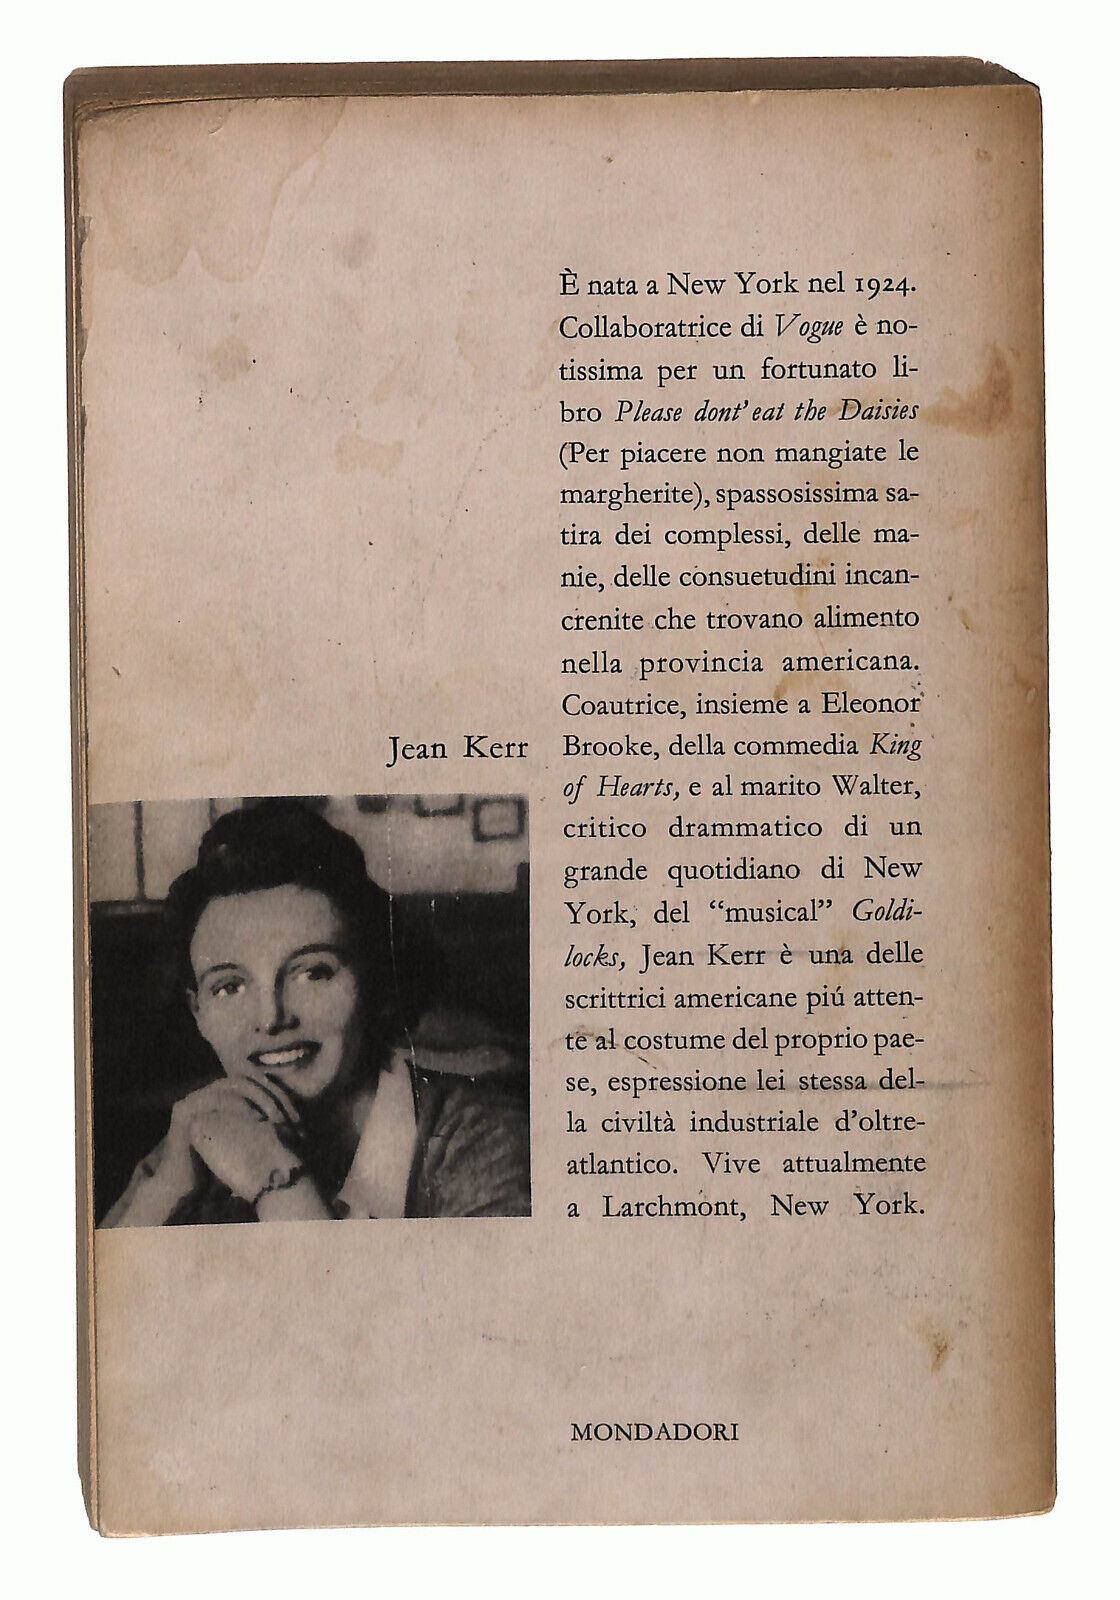 È nata a New York nel 1924.
Collaboratrice di Vogue è no-
tissima per un fortunato li-
bro Please dont' eat the Daisies
(Per piacere non mangiate le
margherite), spassosissima sa-
tira dei complessi, delle ma-
nie, delle consuetudini incan-
crenite che trovano alimento
nella provincia americana.
Coautrice, insieme a Eleonor
Jean Kerr
Brooke, della commedia King
of Hearts, e al marito Walter,
critico drammatico di un
grande quotidiano di New
York, del “musical” Goldi-
locks, Jean Kerr è una delle
scrittrici americane piú atten-
te al costume del proprio pae-
se, espressione lei stessa del-
la civiltà industriale d'oltre-
atlantico. Vive attualmente
a Larchmont, New York.
MONDADORI